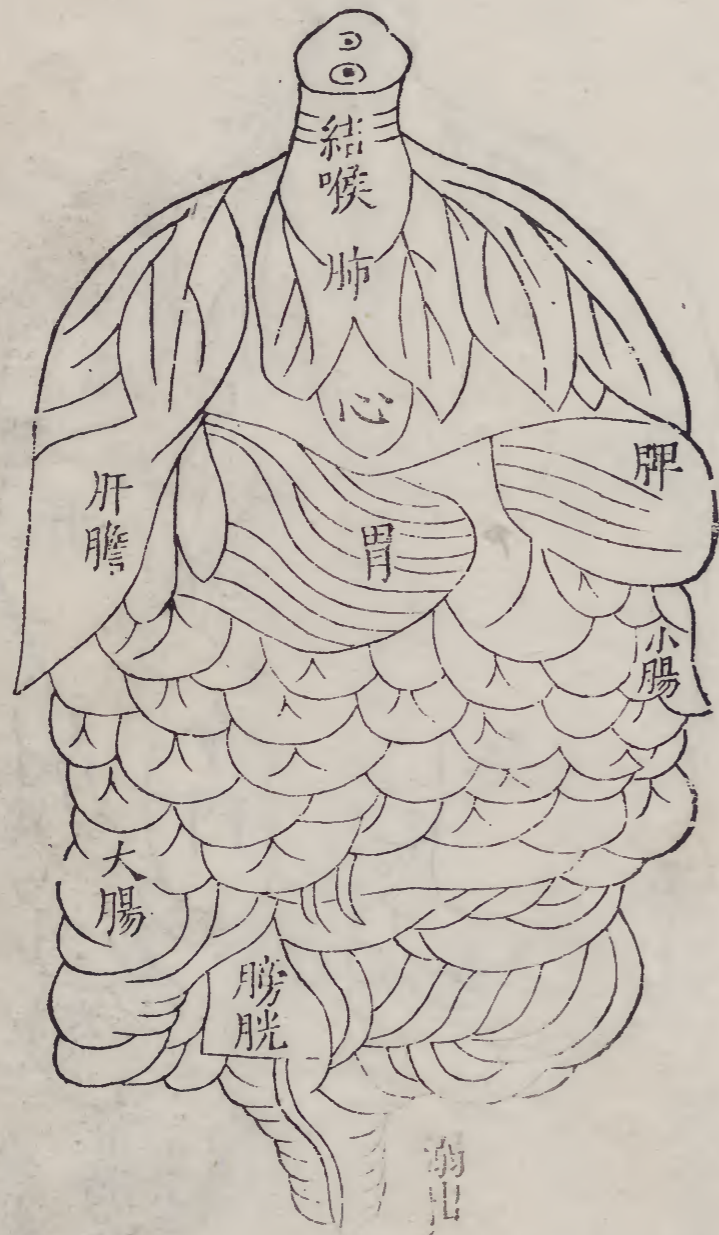 結喉
肺
心
脾
肝膽
胃
小腸
大腸
膀胱
溺出